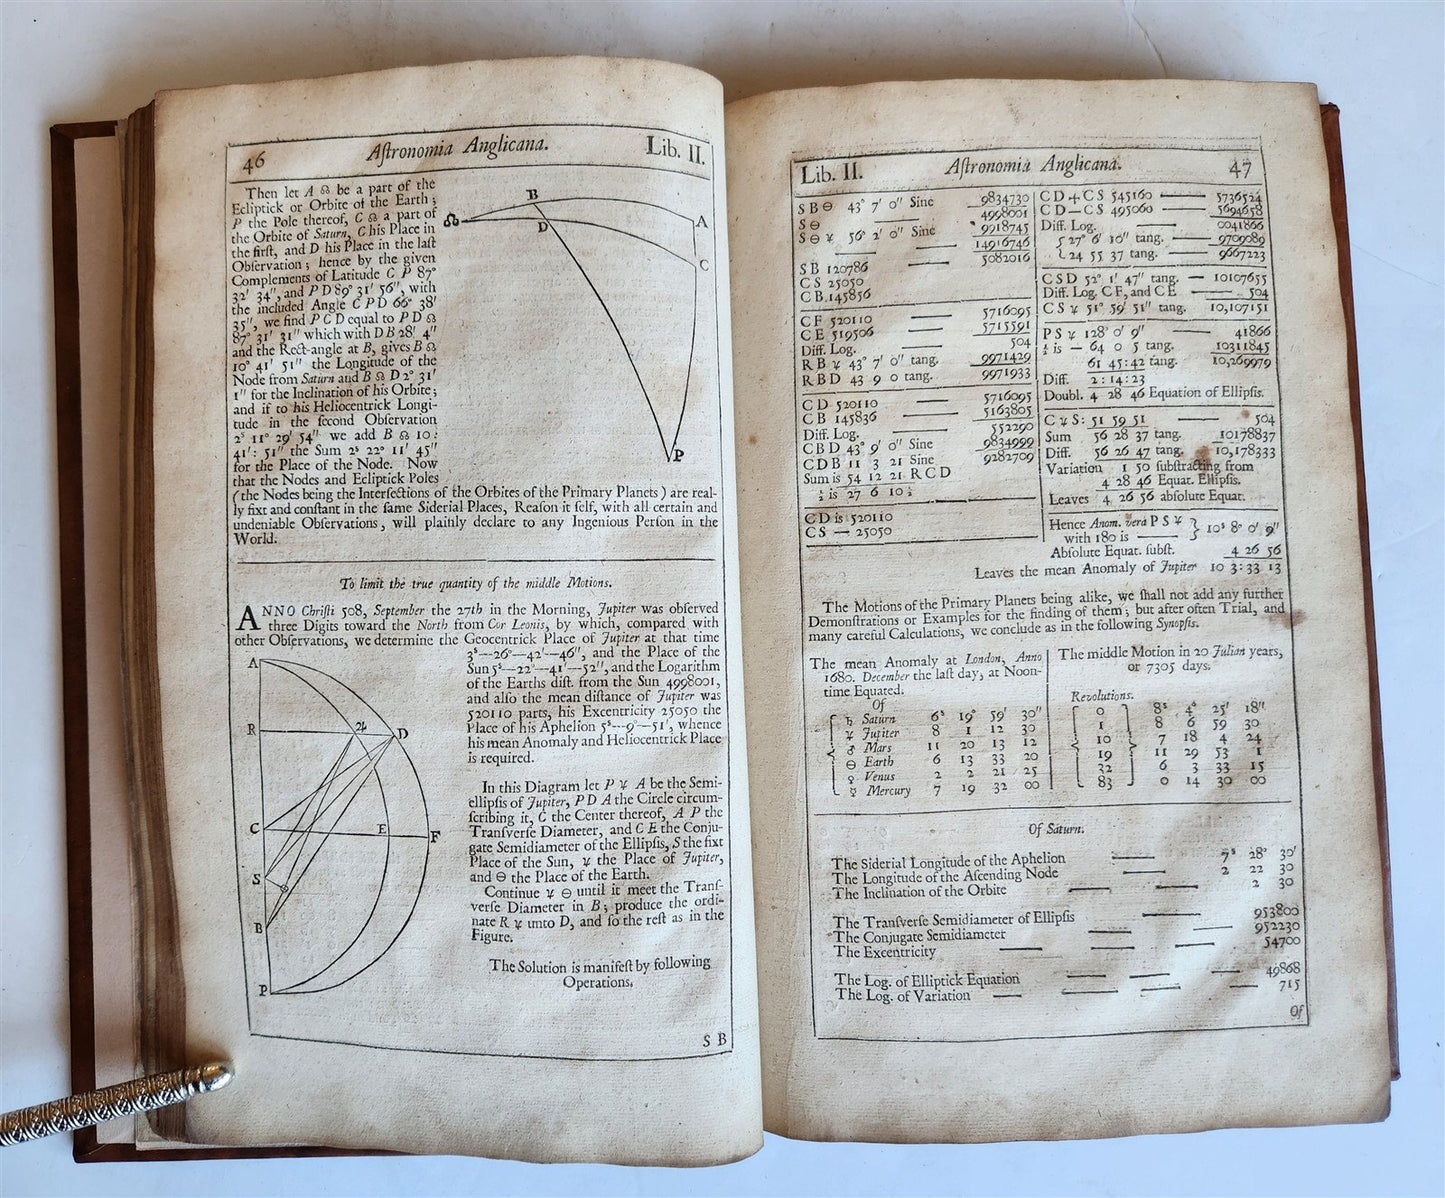 46 Aſtronomia Anglicana. Lib. II.
Then let A ☊ be a part of the
Ecliptick or Orbite of the Earth;
P the Pole thereof, C ☊ a part of
the Orbite of Saturn, C his Place in
the firſt, and D his Place in the laſt
Obſervation; hence by the given
Complements of Latitude C P 87°
32′ 34″, and P D 89° 31′ 56″, with
the included Angle C P D 66° 38′
35″, we find P C D equal to P D ☊
87° 31′ 31″ which with D B 28′ 4″
and the Rect-angle at B, gives B ☊
10° 41′ 51″ the Longitude of the
Node from Saturn and B ☊ D 2° 31′
1″ for the Inclination of his Orbite;
and if to his Heliocentrick Longi-
tude in the ſecond Obſervation
2ˢ 11° 29′ 54″ we add B ☊ 10:
41′: 51″ the Sum 2ˢ 22° 11′ 45″
for the Place of the Node. Now
that the Nodes and Ecliptick Poles
☊
B
D
A
C
P
(the Nodes being the Interſections of the Orbites of the Primary Planets) are real-
ly fixt and conſtant in the ſame Siderial Places, Reaſon it ſelf, with all certain and
undeniable Obſervations, will plainly declare to any Ingenious Perſon in the
World.
To limit the true quantity of the middle Motions.
ANNO Chriſti 508, September the 27th in the Morning, Jupiter was obſerved
three Digits toward the North from Cor Leonis, by which, compared with
other Obſervations, we determine the Geocentrick Place of Jupiter at that time
3ˢ—26°—42′—46″, and the Place of the
Sun 5ˢ—22°—41′—52″, and the Logarithm
of the Earths diſt. from the Sun 4998001,
and alſo the mean diſtance of Jupiter was
520110 parts, his Excentricity 25050 the
Place of his Aphelion 5ˢ—9°—51′, whence
his mean Anomaly and Heliocentrick Place
is required.
A
R
♃
D
C
E
F
S
B
P
In this Diagram let P ♃ A be the Semi-
ellipſis of Jupiter, P D A the Circle circum-
ſcribing it, C the Center thereof, A P the
Tranſverſe Diameter, and C E the Conju-
gate Semidiameter of the Ellipſis, S the fixt
Place of the Sun, ♃ the Place of Jupiter,
and ⊖ the Place of the Earth.
Continue ♃ ⊖ until it meet the Tranſ-
verſe Diameter in B; produce the ordi-
nate R ♃ unto D, and ſo the reſt as in the
Figure.
The Solution is manifeſt by following
Operations.
S B
Lib. II. Aſtronomia Anglicana. 47
S B ⊖ 43° 7′ 0″ Sine 9834730
S ⊖ —— 4998001
S ⊖ ♃ 56° 2′ 0″ Sine 9918745
—— 14916746
S B 120786 —— 5082016
C S 25050
C B 145836
C F 520110 —— 5716095
C E 519506 —— 5715591
Diff. Log. 504
R B ♃ 43° 7′ 0″ tang. 9971429
R B D 43 9 0 tang. 9971933
C D 520110 —— 5716095
C B 145836 —— 5163805
Diff. Log. —— 552290
C B D 43° 9′ 0″ Sine 9834999
C D B 11 3 21 Sine 9282709
Sum is 54 12 21 R C D
½ is 27 6 10 ½
C D is 520110
C S — 25050
C D + C S 545160 —— 5736524
C D — C S 495060 —— 5694658
Diff. Log. 0041866
27° 6′ 10″ tang. —— 9709089
24 55 37 tang. —— 9667223
C S D 52° 1′ 47″ tang. — 10107655
Diff. Log. C F, and C E —— 504
C S ♃ 51° 59′ 51″ tang. 10,107151
P S ♃ 128° 0′ 9″ —— 41866
½ is — 64 0 5 tang. 10311845
61 45:42 tang. 10,269979
Diff. 2:14:23
Doubl. 4 28 46 Equation of Ellipſis.
C ♃ S: 51 59 51 —— 504
Sum 56 28 37 tang. 10178837
Diff. 56 26 47 tang. 10,178333
Variation 1 50 ſubſtracting from
4 28 46 Equat. Ellipſis.
Leaves 4 26 56 abſolute Equat.
Hence Anom. vera P S ♃ } 10ˢ 8° 0′ 9″
with 180 is ——
Abſolute Equat. ſubſt. 4 26 56
Leaves the mean Anomaly of Jupiter 10 3:33 13
The Motions of the Primary Planets being alike, we ſhall not add any further
Demonſtrations or Examples for the finding of them; but after often Trial, and
many careful Calculations, we conclude as in the following Synopſis.
The mean Anomaly at London, Anno
1680. December the laſt day, at Noon-
time Equated.
Of
♄ Saturn 6ˢ 19° 59′ 30″
♃ Jupiter 8 1 12 30
♂ Mars 11 20 13 12
⊖ Earth 6 13 33 20
♀ Venus 2 2 21 25
☿ Mercury 7 19 32 00
The middle Motion in 20 Julian years,
or 7305 days.
Revolutions.
0 8ˢ 4° 25′ 18″
1 8 6 59 30
10 7 18 4 24
19 11 29 53 1
32 6 3 33 15
83 0 14 30 00
Of Saturn.
The Siderial Longitude of the Aphelion —— 7ˢ 28° 30′
The Longitude of the Aſcending Node —— 2 22 30
The Inclination of the Orbite —— —— 2 30
The Tranſverſe Semidiameter of Ellipſis —— 953800
The Conjugate Semidiameter —— —— 952230
The Excentricity —— —— —— 54700
The Log. of Elliptick Equation —— —— —— 49868
The Log. of Variation —— —— —— —— 715
Of